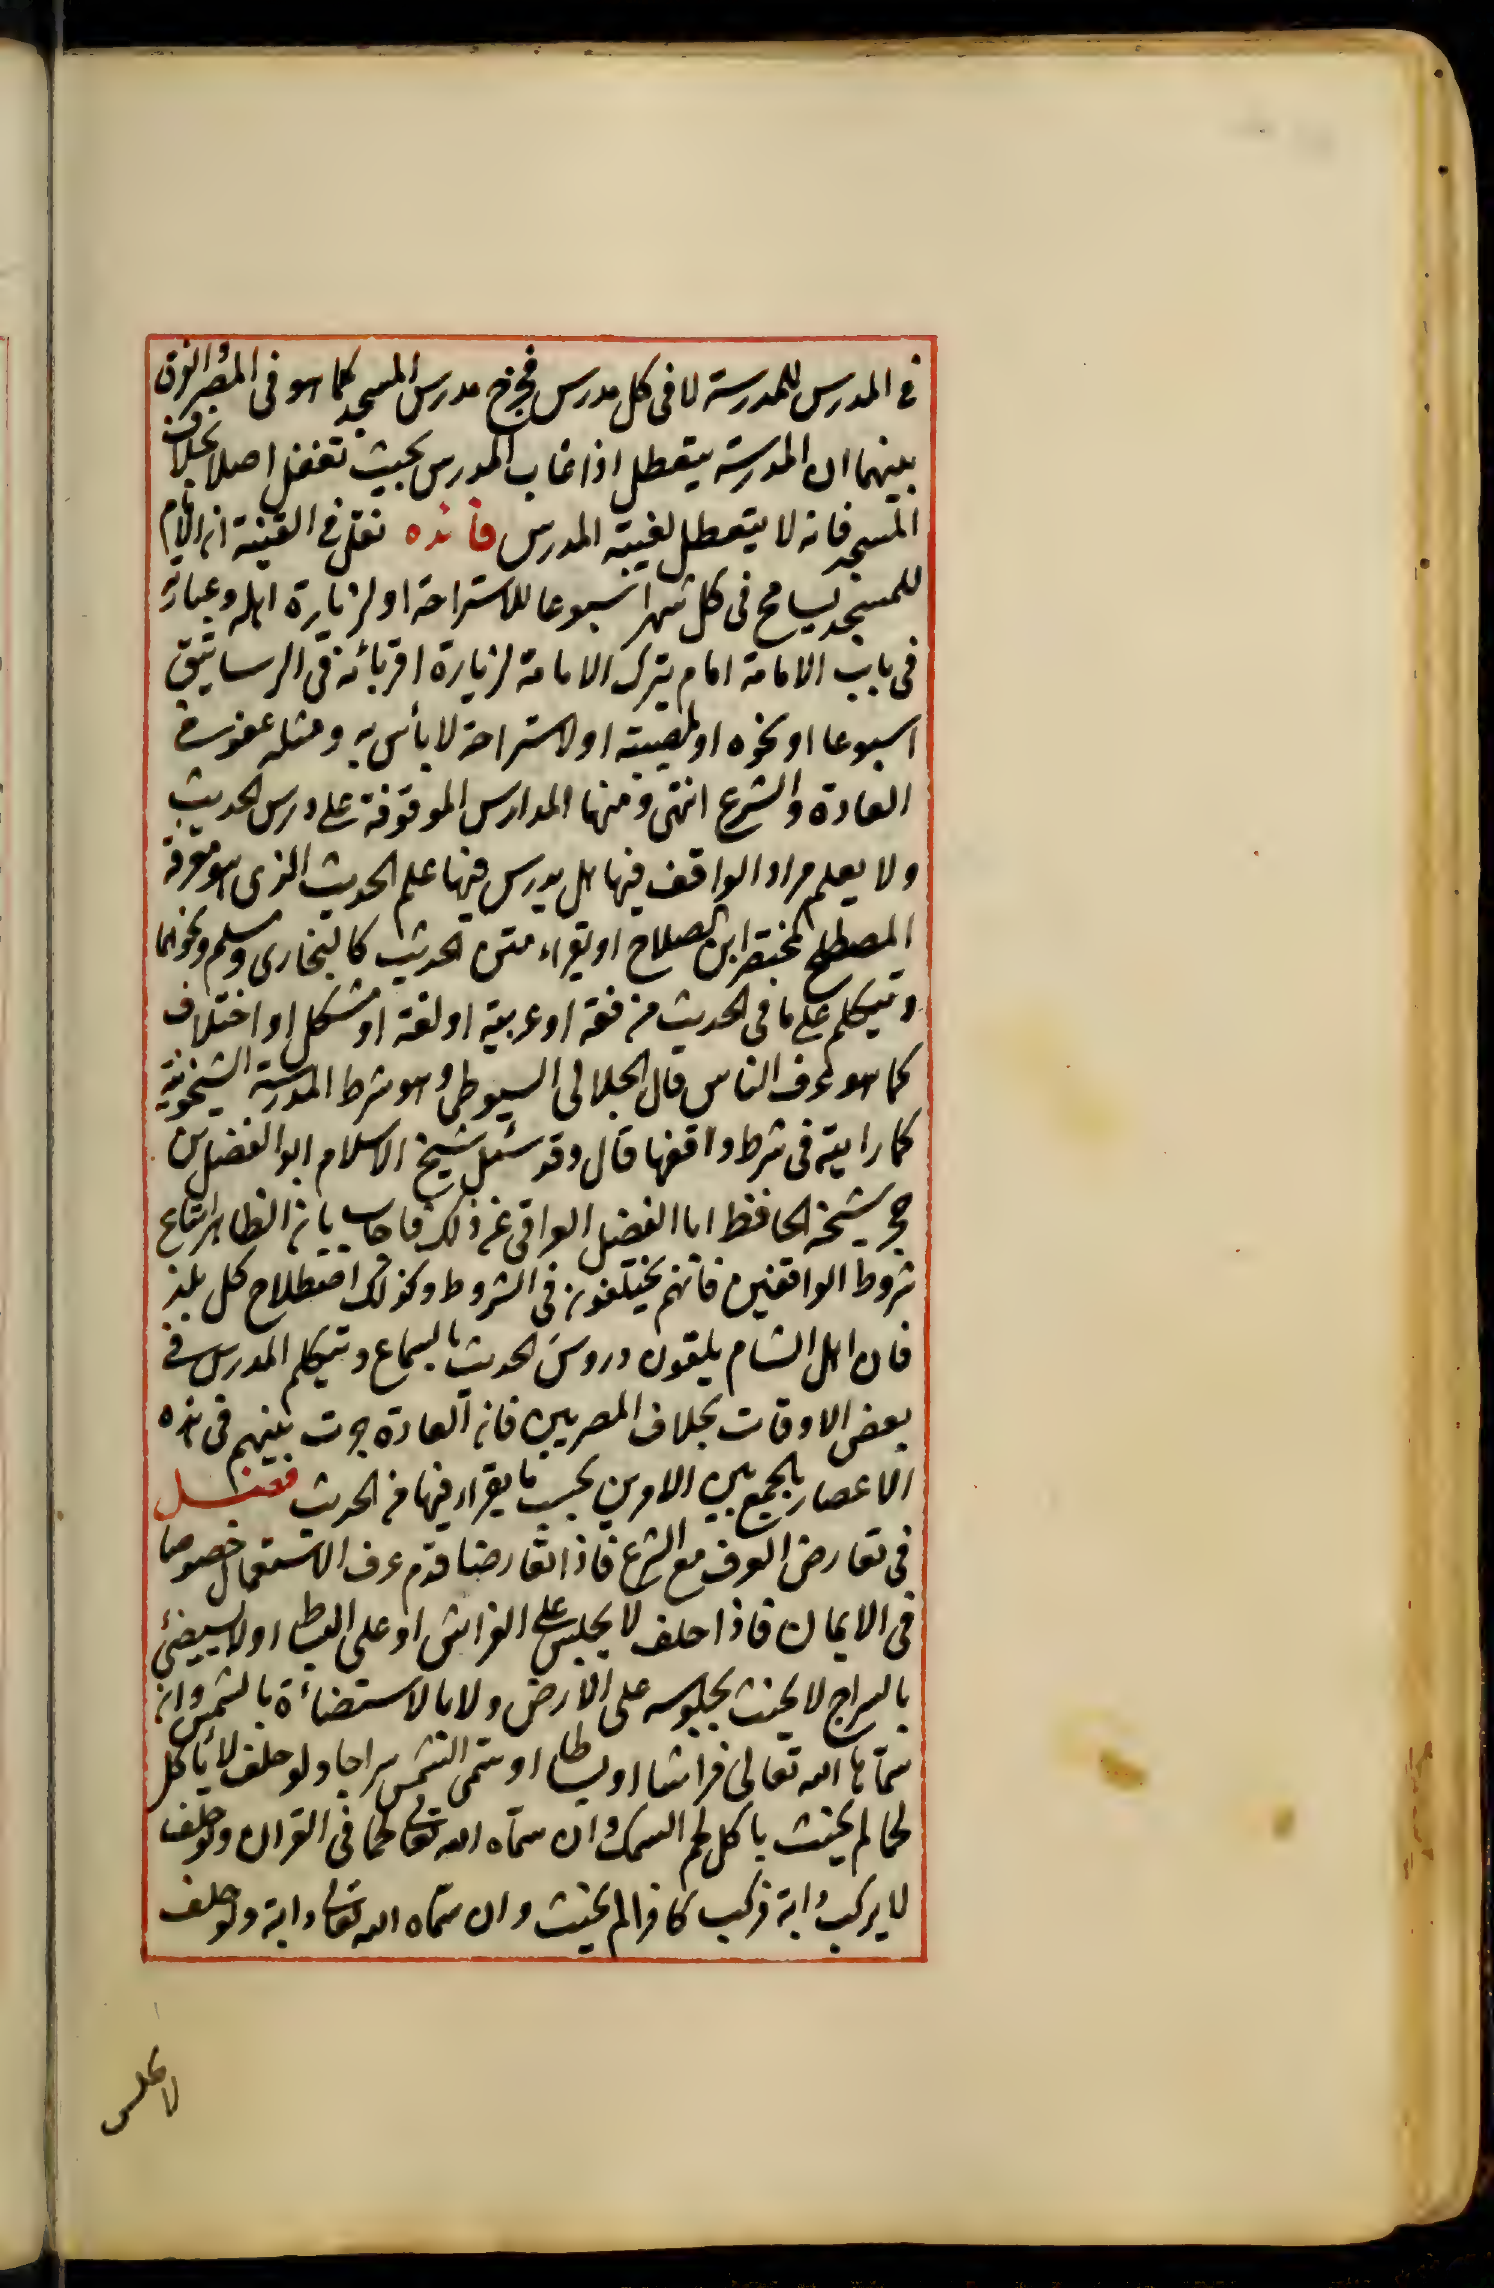 في المدرس للمدرسة لا في كل مدرس فخرج مدرس المسجد كما هو في المصر والفرق
بينهما ان المدرسة يتعطل اذا غاب المدرس بحيث تغفل اصلا بخلاف
المسجد فانه لا يتعطل لغيبة المدرس فائده نقل في القنية ان الامام
للمسجد يسامح في كل شهر اسبوعا للاستراحة او لزيارة اهله وعبارته
في باب الامامة امام يترك الامامة لزيارة اقربائه في الرساتيق
اسبوعا او نحوه او لمصيبة او لاستراحة لا بأس به ومثله عفو في
العادة والشرع انتهى ومنها المدارس الموقوفة على درس الحديث
ولا يعلم مراد الواقف فيها هل يدرس فيها علم الحديث الذي هو معرفة
المصطلح كمختصر ابن الصلاح او يقراء متن الحديث كالبخاري ومسلم ونحوهما
ويتكلم على ما في الحديث من فقه او عربية او لغة او مشكل او اختلاف
كما هو عرف الناس قال الجلالي السيوطي وهو شرط المدرسة الشيخونية
كما رايته في شرط واقفها قال وقد سئل شيخ الاسلام ابو الفضل بن
حجر شيخه الحافظ ابا الفضل العراقي عن ذلك فاجاب بانه الظاهر اتباع
شروط الواقفين فانهم يختلفون في الشروط وكذلك اصطلاح كل بلد
فان اهل الشام يلقون دروس الحديث بالسماع ويتكلم المدرس في
بعض الاوقات بخلاف المصريين فان العادة جرت بينهم في هذه
الاعصار بالجمع بين الامرين بحسب ما يقراء فيها من الحديث فصل
في تعارض العرف مع الشرع فاذا تعارضا قدم عرف الاستعمال خصوصا
في الايمان فاذا حلف لا يجلس على الفراش او على البساط او لا يستضئ
بالسراج لا يحنث بجلوسه على الارض ولا بالاستضاءة بالشمس وان
سمّاها الله تعالى فراشا او بساطا او سمّى الشمس سراجا ولو حلف لا يأكل
لحما لم يحنث باكل لحم السمك وان سمّاه الله تعالى لحما في القران ولو حلف
لا يركب دابة فركب كافرا لم يحنث وان سمّاه الله تعالى دابة ولو حلف
لا يجلس